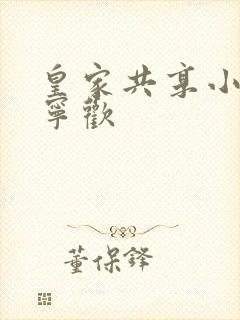 皇家共享小
寧歡
董保鋒